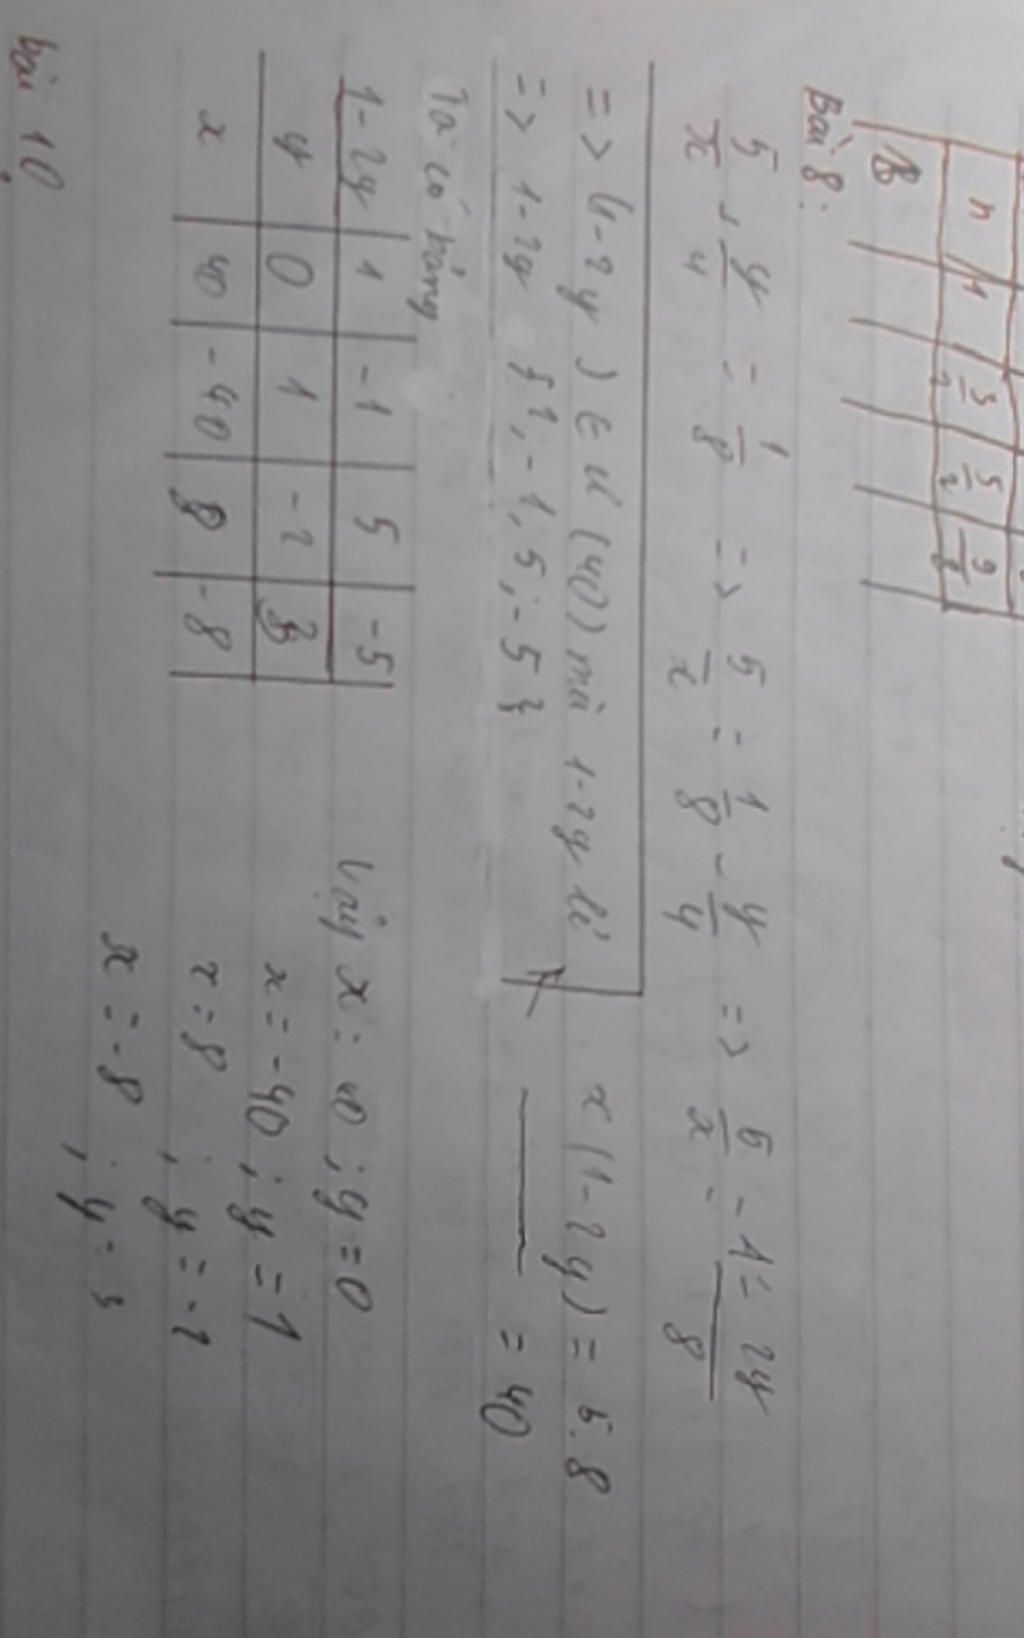 n 4 3/2 5/2 9/2
B
Bài 8:
5/x + y/4 = 1/8 => 5/x = 1/8 - y/4 => 5/x = 1 - 2y/8
=> (1-2y) ∈ Ư(40) mà 1-2y lẻ x(1-2y) = 5.8
=> 1-2y {1;-1;5;-5} = 40
Ta có bảng
1-2y 1 -1 5 -5
y 0 1 -2 3
x 40 -40 8 -8
Vậy x = 40; y = 0
x = -40; y = 1
x = 8; y = -2
x = -8; y = 3
bài 10